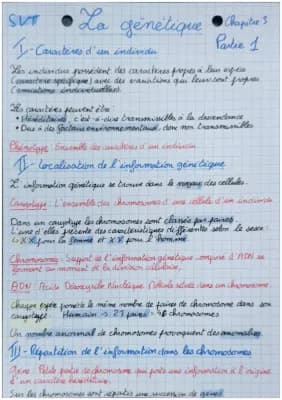 SVT La génétique Chapitre 3
Partie 1
I - Caractères d'un individu
Les individus possèdent des caractères propres à leur espèce
(caractères spécifiques) avec des variations qui leur sont propres
(variations individuelles).
Les caractères peuvent être :
• Héréditaires, c'est-à-dire transmissible à la descendance
• Dus à des facteurs environnementaux, donc non transmissibles
Phénotype : Ensemble des caractères d'un individu
II - Localisation de l'information génétique
L'information génétique se trouve dans le noyau des cellules.
Caryotype : L'ensemble des chromosomes d'une cellule d'un individu
Dans un caryotype les chromosomes sont classés par paires.
L'une d'elles présente des caractéristiques différentes selon le sexe
↳ XX pour la femme et XY pour l'homme
Chromosome : Support de l'information génétique composé d'ADN se
formant au moment de la division cellulaire.
ADN : Acide Désoxyribo Nucléique Molécule située dans un chromosome.
Chaque espèce possède le même nombre de paires de chromosome dans son
caryotype Humain → 23 paires → 46 chromosomes
Un nombre anormal de chromosomes provoquent des anomalies
III - Répartition de l'information dans les chromosomes
Gène : Petite partie de chromosome qui porte une information à l'origine
d'un caractère héréditaire.
Sur les chromosomes sont répartis une succession de gènes